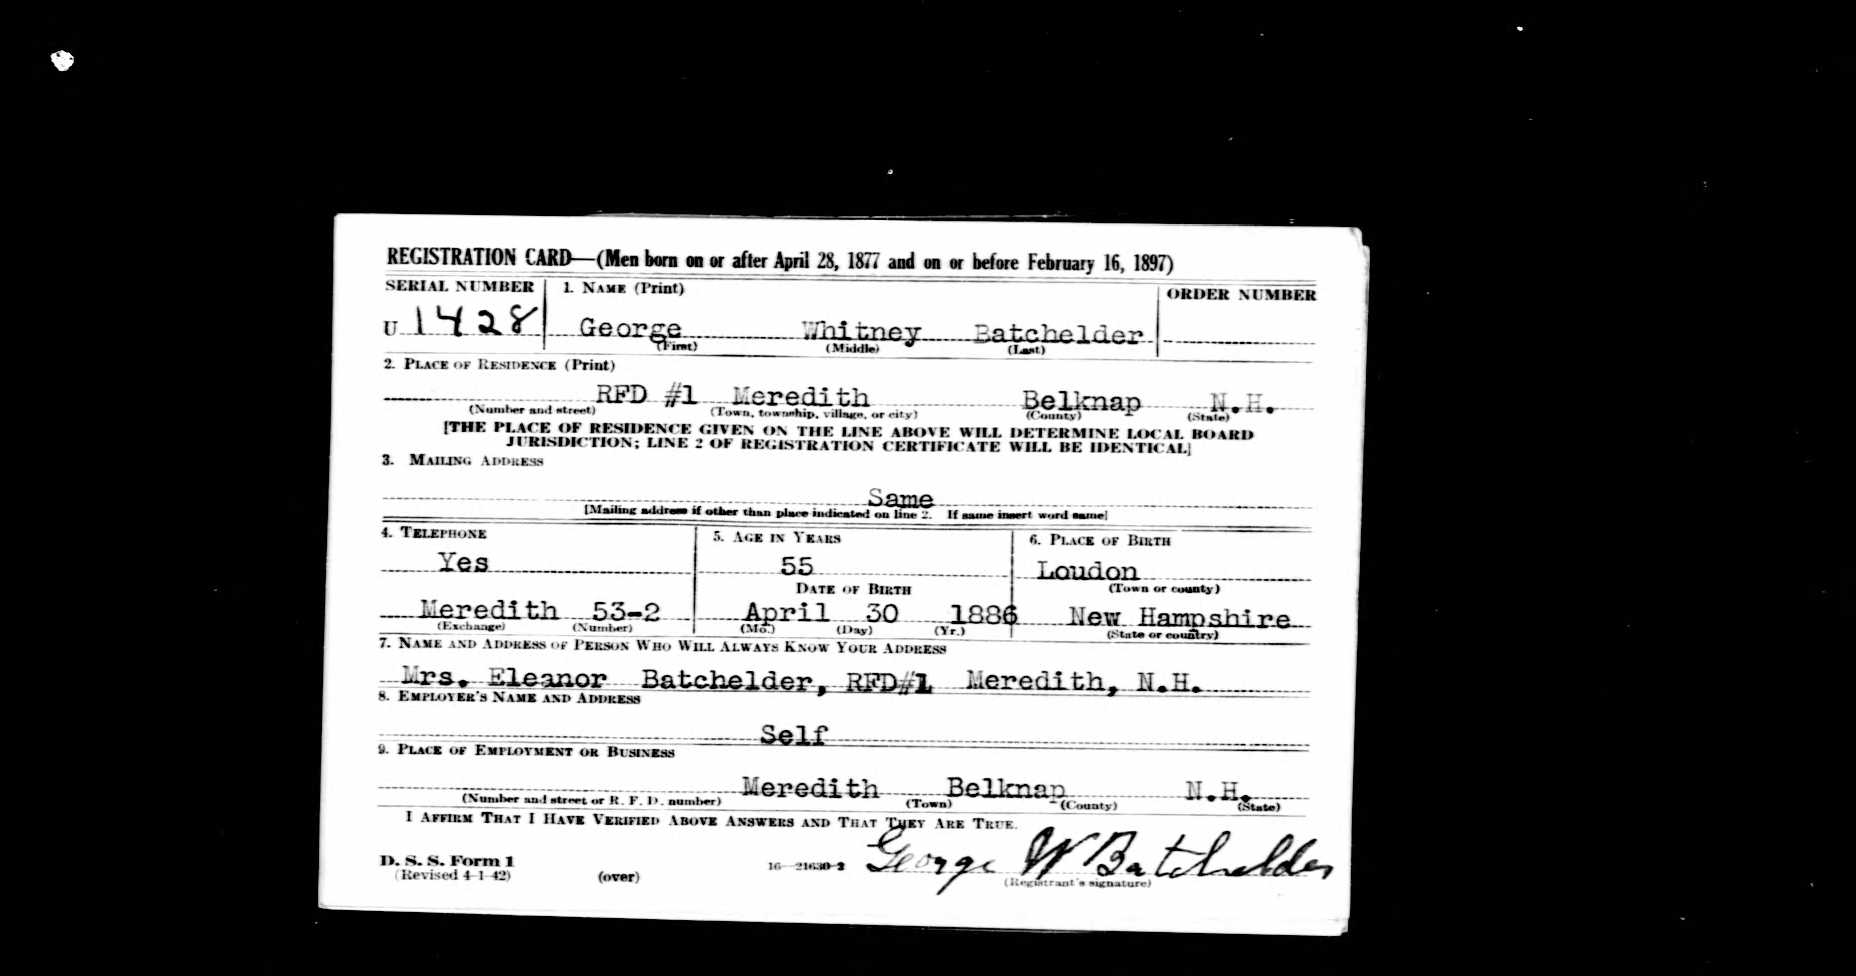 REGISTRATION CARD—(Men born on or after April 28, 1877 and on or before February 16, 1897)
SERIAL NUMBER 1. NAME (Print) ORDER NUMBER
U 1428 George Whitney Batchelder
(First) (Middle) (Last)
2. PLACE OF RESIDENCE (Print)
RFD #1 Meredith Belknap N.H.
(Number and street) (Town, township, village, or city) (County) (State)
[THE PLACE OF RESIDENCE GIVEN ON THE LINE ABOVE WILL DETERMINE LOCAL BOARD
JURISDICTION; LINE 2 OF REGISTRATION CERTIFICATE WILL BE IDENTICAL]
3. MAILING ADDRESS
Same
[Mailing address if other than place indicated on line 2. If same insert word same]
4. TELEPHONE 5. AGE IN YEARS 6. PLACE OF BIRTH
Yes 55 Loudon
DATE OF BIRTH (Town or county)
Meredith 53-2 April 30 1886 New Hampshire
(Exchange) (Number) (Mo.) (Day) (Yr.) (State or country)
7. NAME AND ADDRESS OF PERSON WHO WILL ALWAYS KNOW YOUR ADDRESS
Mrs. Eleanor Batchelder, RFD#1 Meredith, N.H.
8. EMPLOYER'S NAME AND ADDRESS
Self
9. PLACE OF EMPLOYMENT OR BUSINESS
Meredith Belknap N.H.
(Number and street or R. F. D. number) (Town) (County) (State)
I AFFIRM THAT I HAVE VERIFIED ABOVE ANSWERS AND THAT THEY ARE TRUE.
D. S. S. Form 1 16—21630-2 George W Batchelder
(Revised 4-1-42) (over) (Registrant's signature)